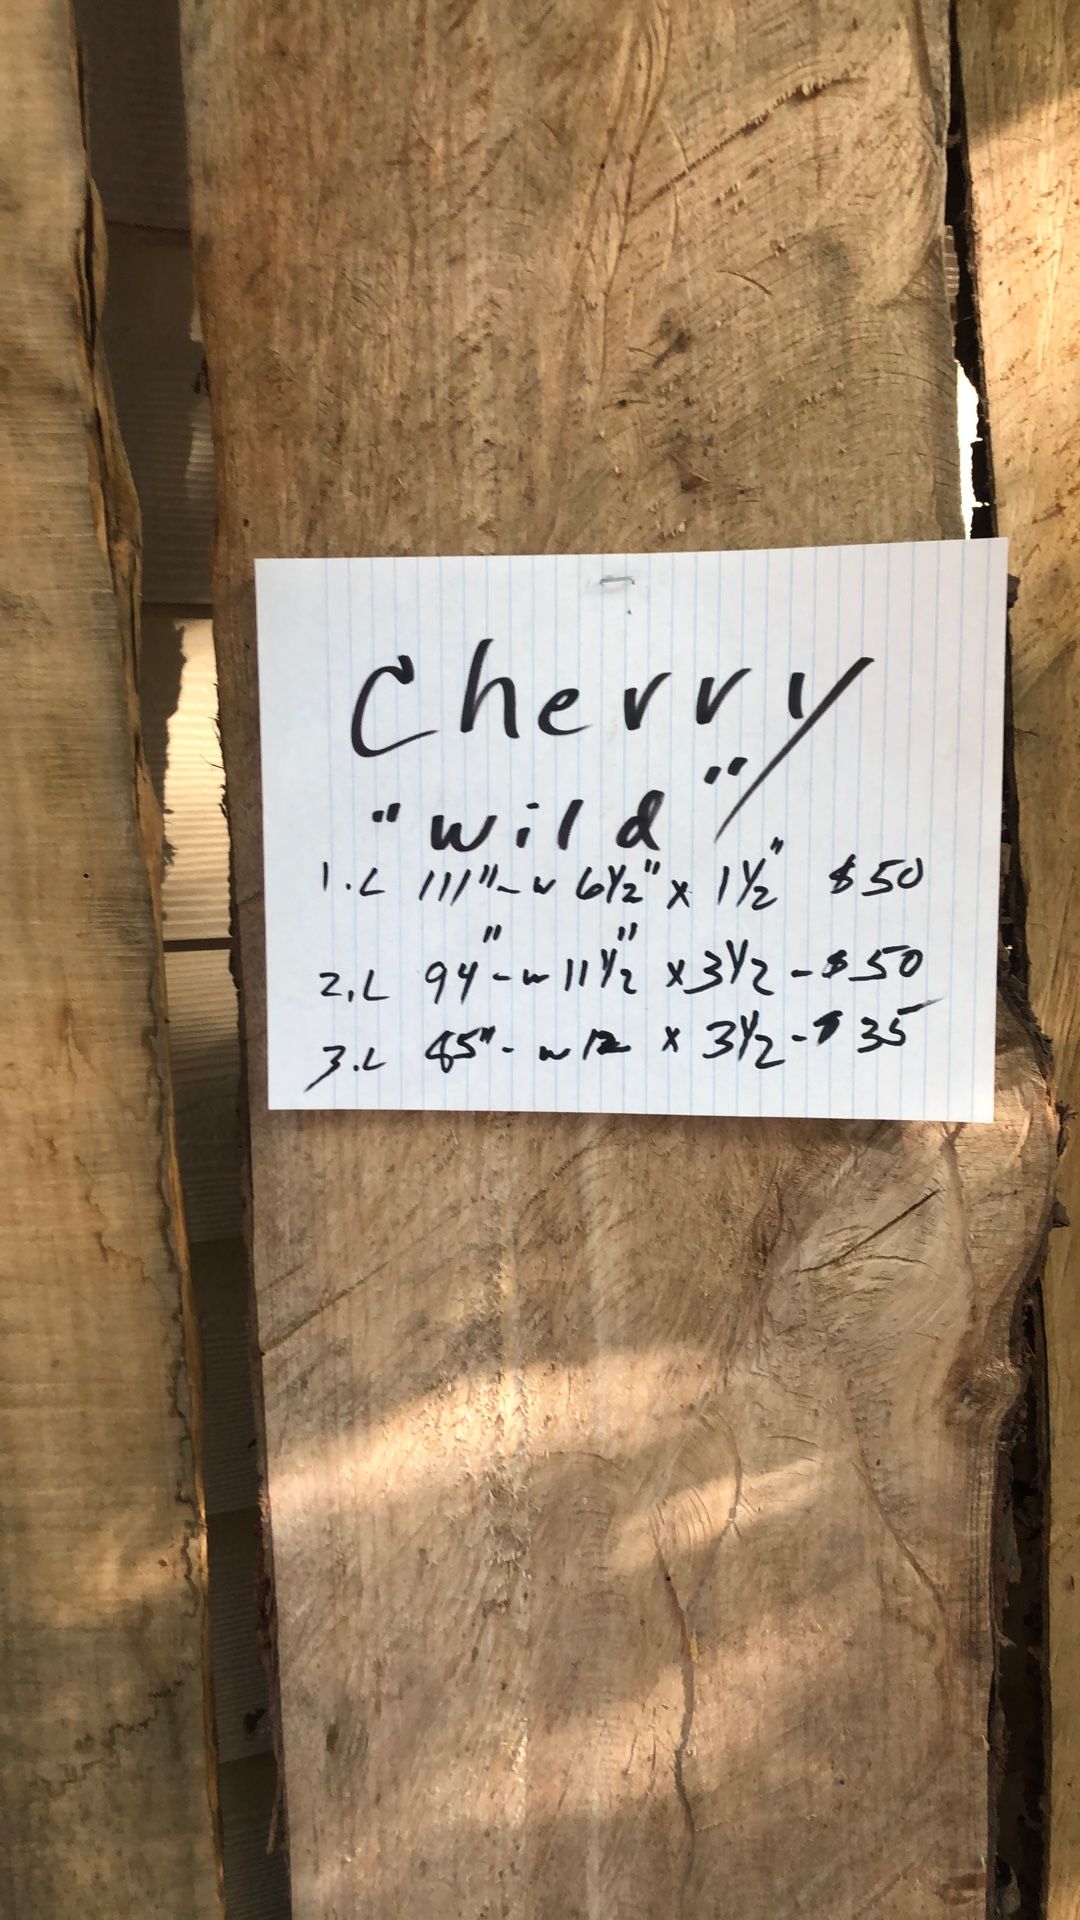 Cherry
"wild"
1.L 111"-w 6 1/2" x 1 1/2" $50
2.L 94"-w 11 1/2" x 3 1/2 - $50
3.L 45"- w 12 x 3 1/2 - $35